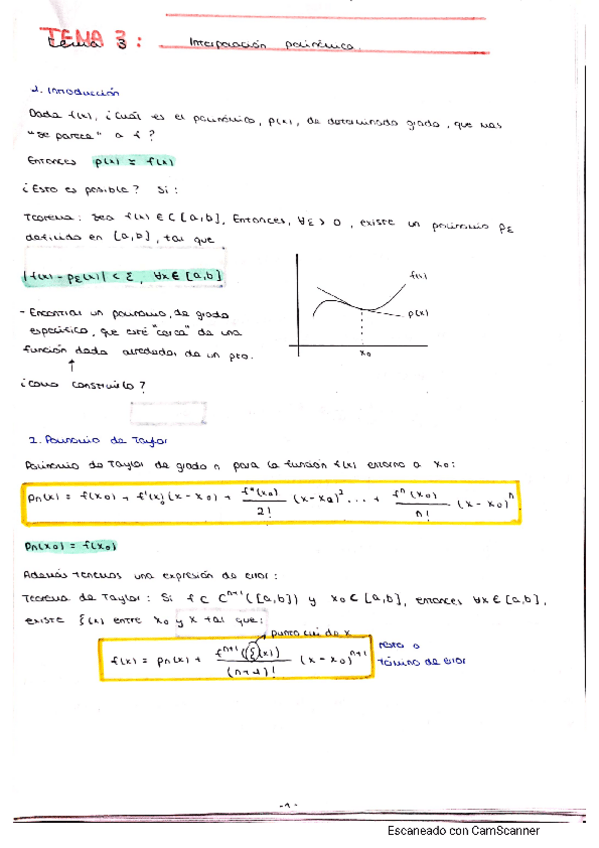 TEMA 3:
tema 3 Interpolación polinómica.
1. Introducción
Dada f(x), ¿Cuál es el polinómico, p(x), de determinado grado, que más
"se parece" a f?
Entonces p(x) ≈ f(x)
¿Esto es posible? Si:
Teorema: Sea f(x) ∈ C [a,b], Entonces, ∀ε > 0, existe un polinomio pε
definido en [a,b], tal que
|f(x) - pε(x)| < ε, ∀x ∈ [a,b]
f(x)
p(x)
x₀
- Encontrar un polinomio, de grado
específico, que esté "cerca" de una
función dada alrededor de un pto.
↑
¿como construirlo?
2. Polinomio de Taylor
Polinomio de Taylor de grado n para la función f(x) entorno a x₀:
pn(x) = f(x₀) + f'(x₀)(x - x₀) + f''(x₀)/2! (x-x₀)² ... + fⁿ(x₀)/n! (x - x₀)ⁿ
pn(x₀) = f(x₀)
Además tenemos una expresión de error:
Teorema de Taylor: Si f ⊂ Cⁿ⁺¹([a,b]) y x₀ ∈ [a,b], entonces ∀x ∈ [a,b],
existe ξ(x) entre x₀ y x tal que:
f(x) = pn(x) + fⁿ⁺¹(ξ(x))/(n+1)! (x - x₀)ⁿ⁺¹
resto o
término de error
-1-
Escaneado con CamScanner